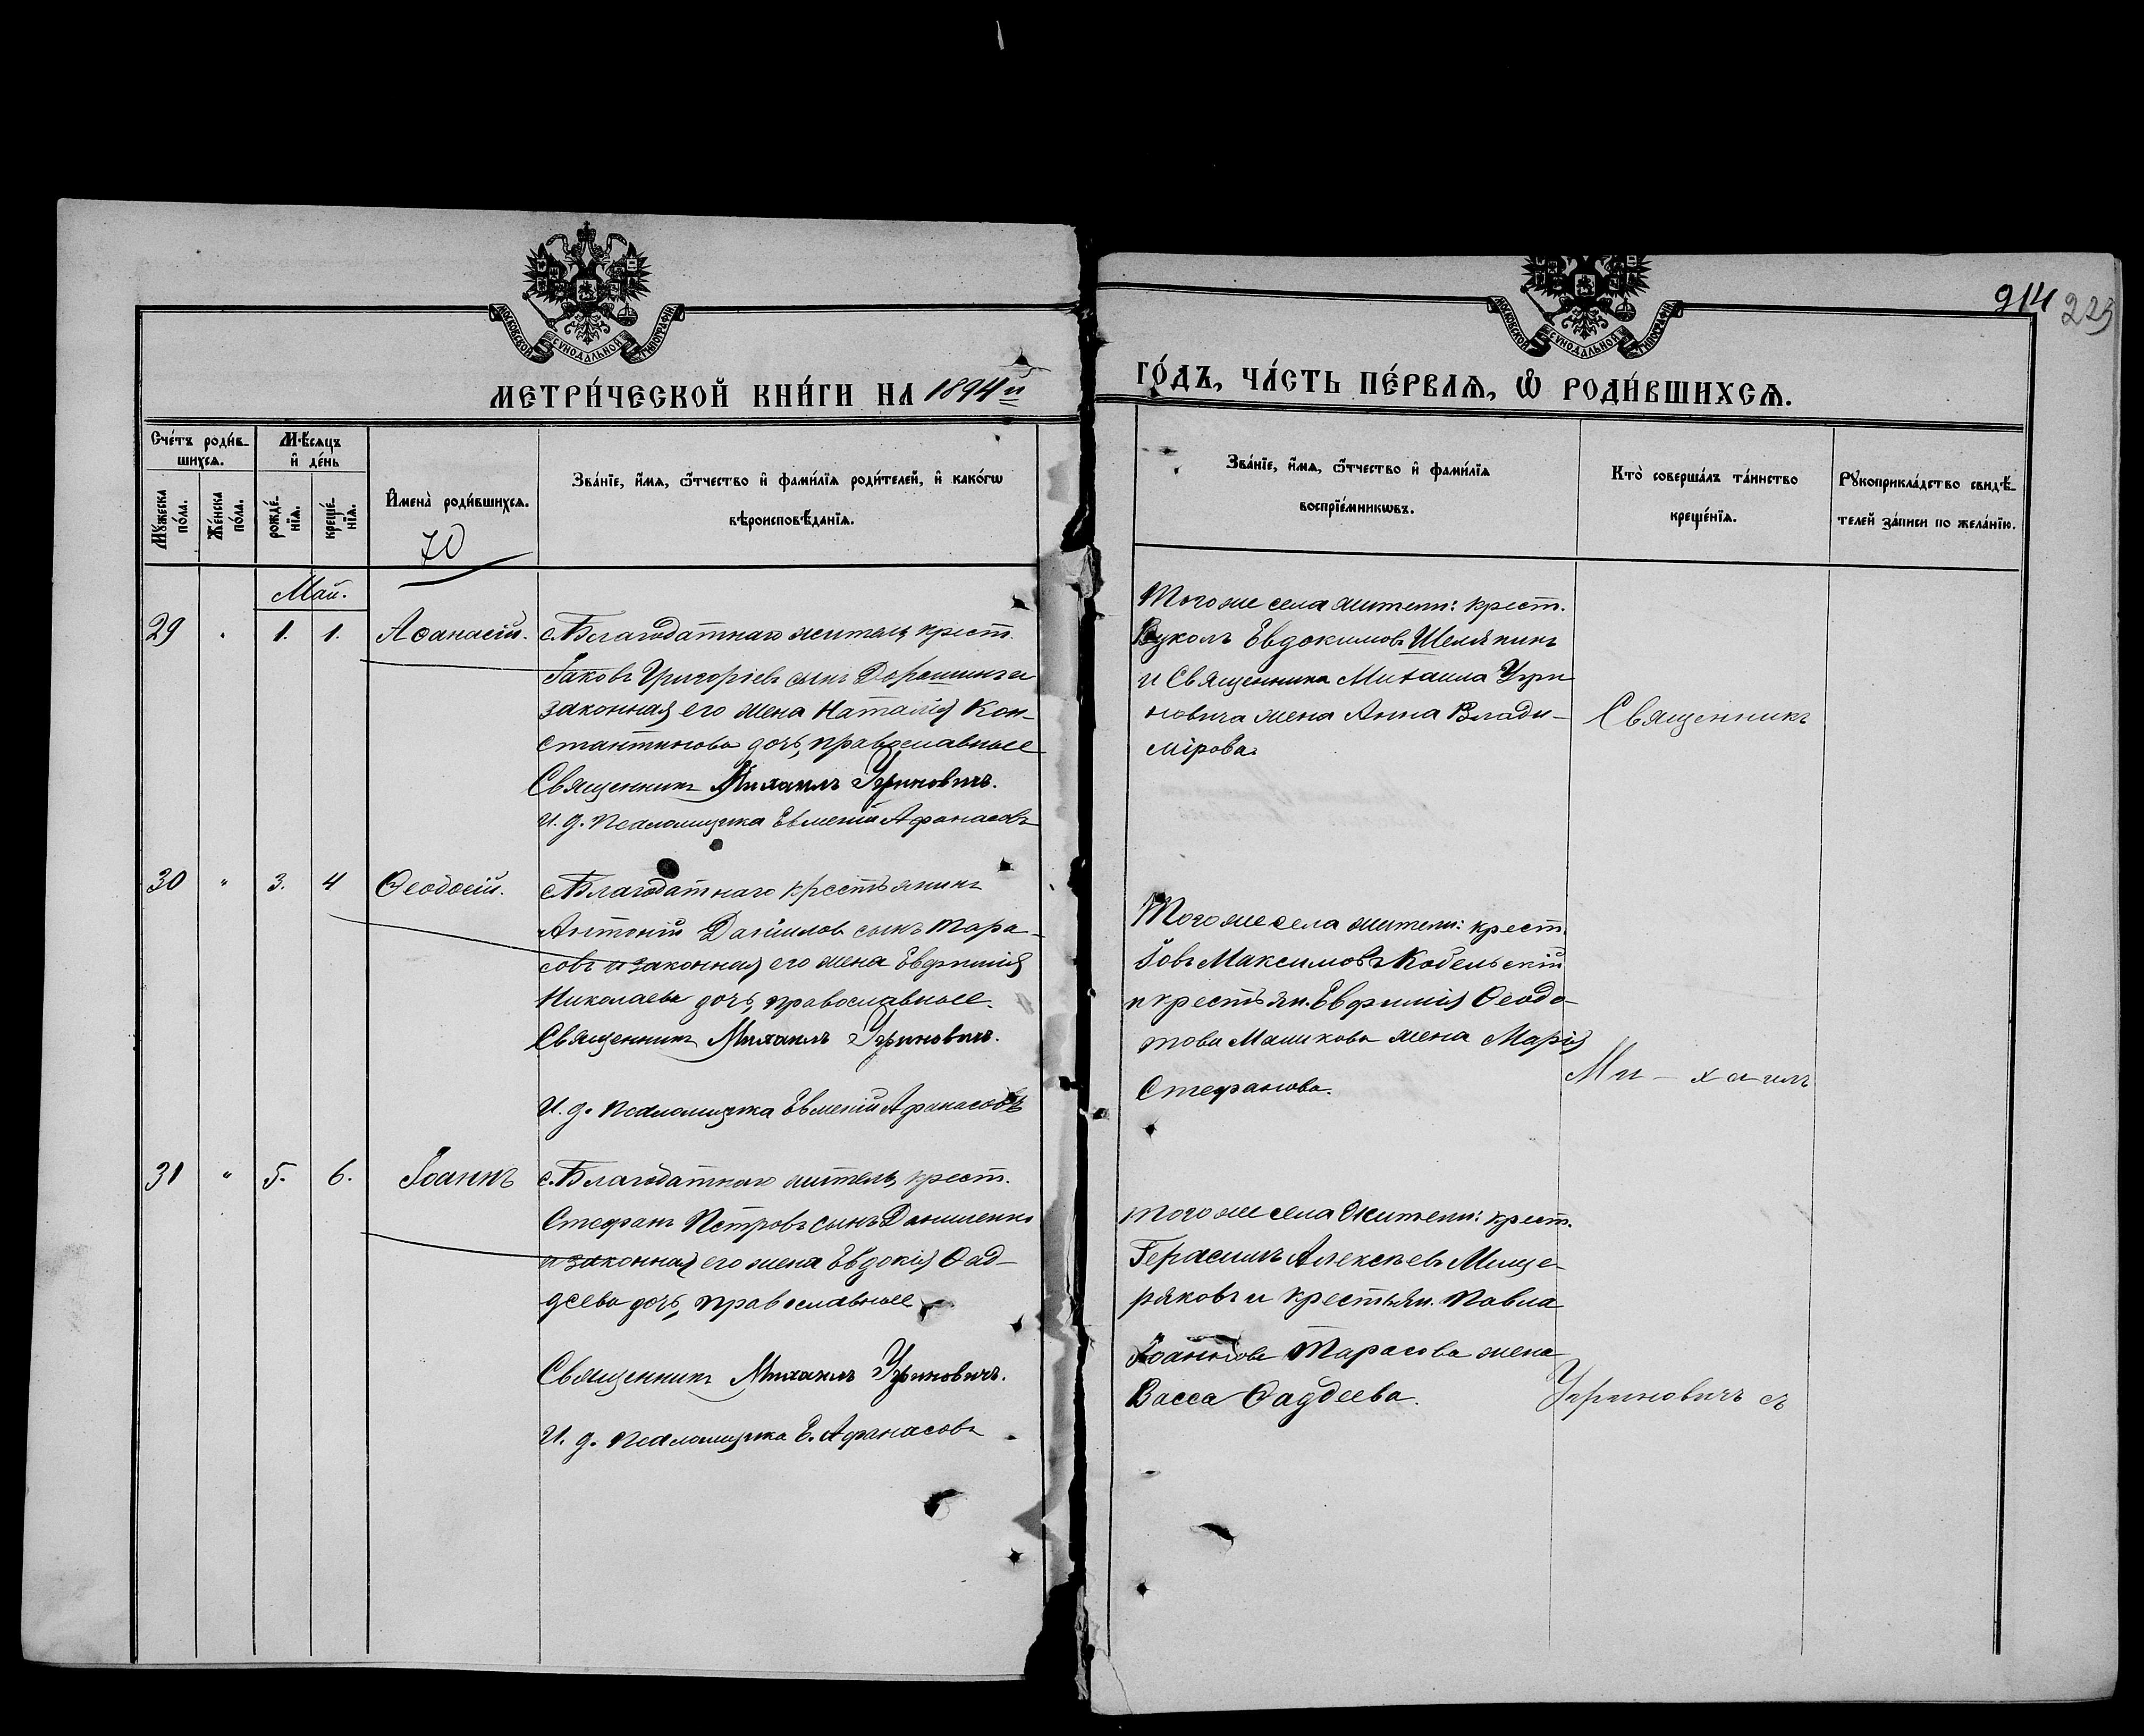 914 223
МОСКОВСКОЙ СУНОДАЛЬНОЙ ТИПОГРАФІИ
МОСКОВСКОЙ СУНОДАЛЬНОЙ ТИПОГРАФІИ
МЕТРИ́ЧЕСКОЙ КНИ́ГИ НА 1894 й
ГО́ДЪ, ЧА́СТЬ ПЕ́РВАѦ, Ѡ҆ РОДИ́ВШИХСѦ.
Сче́тъ роди́в-
шихсѧ.
Мꙋ́жеска по́ла.
Же́нска по́ла.
Мѣ́сѧцъ
и҆ де́нь
рожде́-
нїѧ.
креще́-
нїѧ.
И҆мена̀ роди́вшихсѧ.
70
Зва́нїе, и҆́мѧ, ѻ҆́тчество и҆ фами́лїѧ роди́телей, и҆ како́гѡ
вѣроисповѣ́данїѧ.
Зва́нїе, и҆́мѧ, ѻ҆́тчество и҆ фами́лїѧ
воспрїе́мникѡвъ.
Кто̀ соверша́лъ та́инство
креще́нїѧ.
Рꙋкоприкла́дство свидѣ́-
телей за́писи по жела́нїю.
Май.
29 " 1. 1. Аѳанасій.
с. Благодатнаго житель, крест.
Іаковъ Григоріевъ сынъ Дорошинъ и
законная его жена Наталія Кон-
стантинова дочь, православные
Священникъ Михаилъ Угриновичъ.
И. д. Псаломщика Евменій Афанасовъ
Того же села жители: крест.
Вуколъ Евдокимовъ Шеляпинъ
и Священника Михаила Угри
новича жена Анна Влади-
мірова.
Священникъ
30 " 3. 4 Ѳеодосій.
с. Благодатнаго крестьянинъ
Антоній Даніиловъ сынъ Тара-
совъ и законная его жена Евфимія
Николаева дочь, православные.
Священникъ Михаилъ Угриновичъ.
И. д. Псаломщика Евменій Афанасовъ
Того же села жители: крест.
Іовъ Максимовъ Кобельскій
и крестьян. Евфимія Ѳеодо-
това Машкова жена Марія
Стефанова.
Ми - хаилъ
31 " 5. 6. Іоаннъ
с. Благодатнаго житель, крест.
Стефанъ Петровъ сынъ Данименко
и законная его жена Евдокія Ѳад-
деева дочь, православные
Священникъ Михаилъ Угриновичъ.
И. д. Псаломщика Е. Афанасовъ
Того же села жители: крест.
Герасимъ Алексѣевъ Меще-
ряковъ и крестьян. Павла
Іоаннова Тарасова жена
Васса Ѳаддеева.
Угриновичъ съ